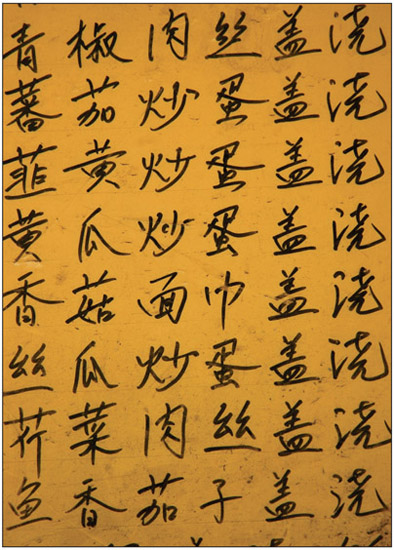 青椒肉丝盖浇
蕃茄炒蛋盖浇
韭黄炒蛋盖浇
黄瓜炒蛋盖浇
香菇面巾盖浇
丝瓜炒蛋盖浇
芹菜肉丝盖浇
鱼香茄子盖浇